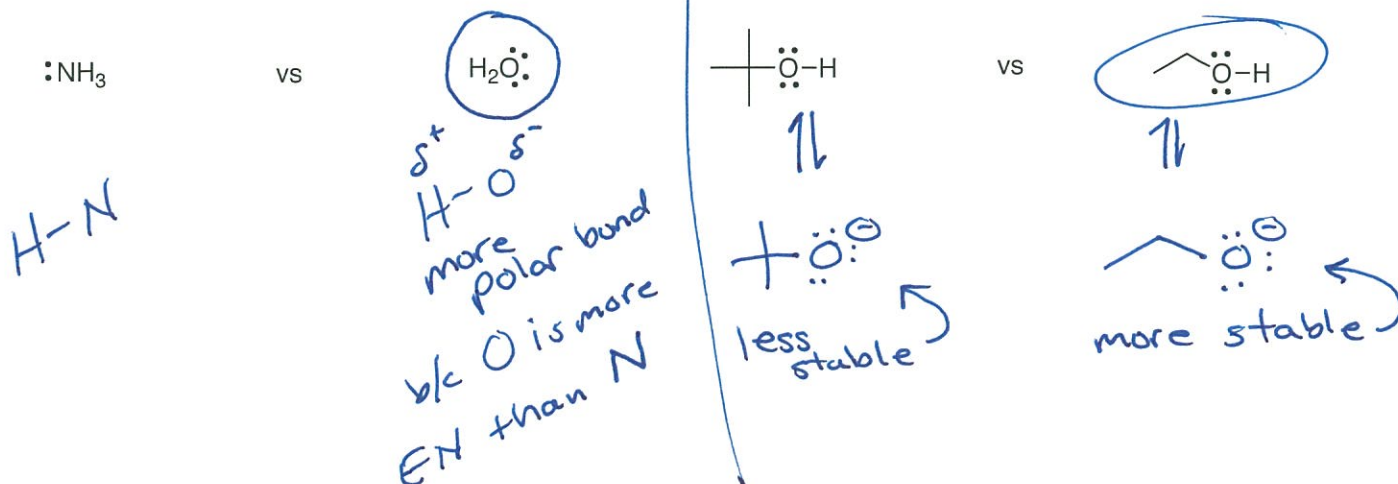 :NH₃ vs H₂O
H-N
δ⁺ δ⁻
H-O
more
polar bond
b/c O is more
EN than N
O-H vs O-H
O ⊖
less
stable
O ⊖
more stable